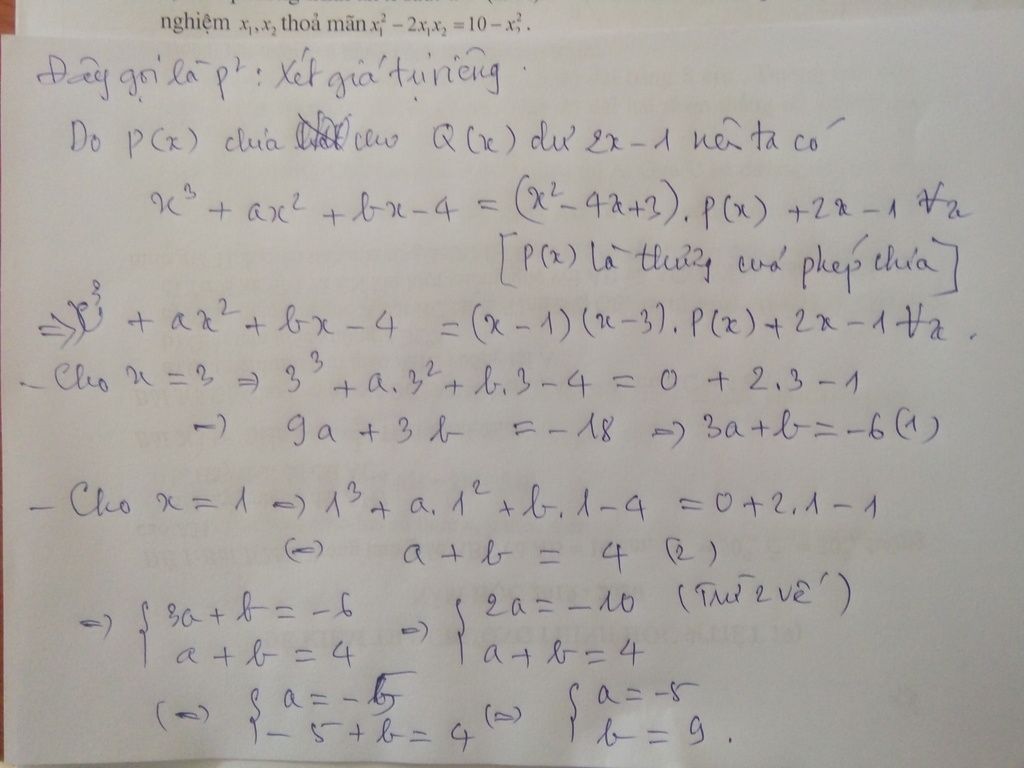 nghiệm x₁, x₂ thoả mãn x₁² – 2x₁x₂ = 10 – x₂².
Đây gọi là p²: Xét giá trị riêng.
Do P(x) chia cho Q(x) dư 2x – 1 nên ta có
x³ + ax² + bx – 4 = (x² – 4x + 3). P(x) + 2x – 1 ∀x
[P(x) là thương của phép chia]
=> x³ + ax² + bx – 4 = (x – 1)(x – 3). P(x) + 2x – 1 ∀x.
– Cho x = 3 => 3³ + a.3² + b.3 – 4 = 0 + 2.3 – 1
=> 9a + 3b = –18 => 3a + b = –6 (1)
– Cho x = 1 => 1³ + a.1² + b.1 – 4 = 0 + 2.1 – 1
(=) a + b = 4 (2)
=> { 3a + b = –6 => { 2a = –10 (Trừ 2 vế)
a + b = 4 a + b = 4
(=) { a = –5 (=) { a = –5
– 5 + b = 4 b = 9.